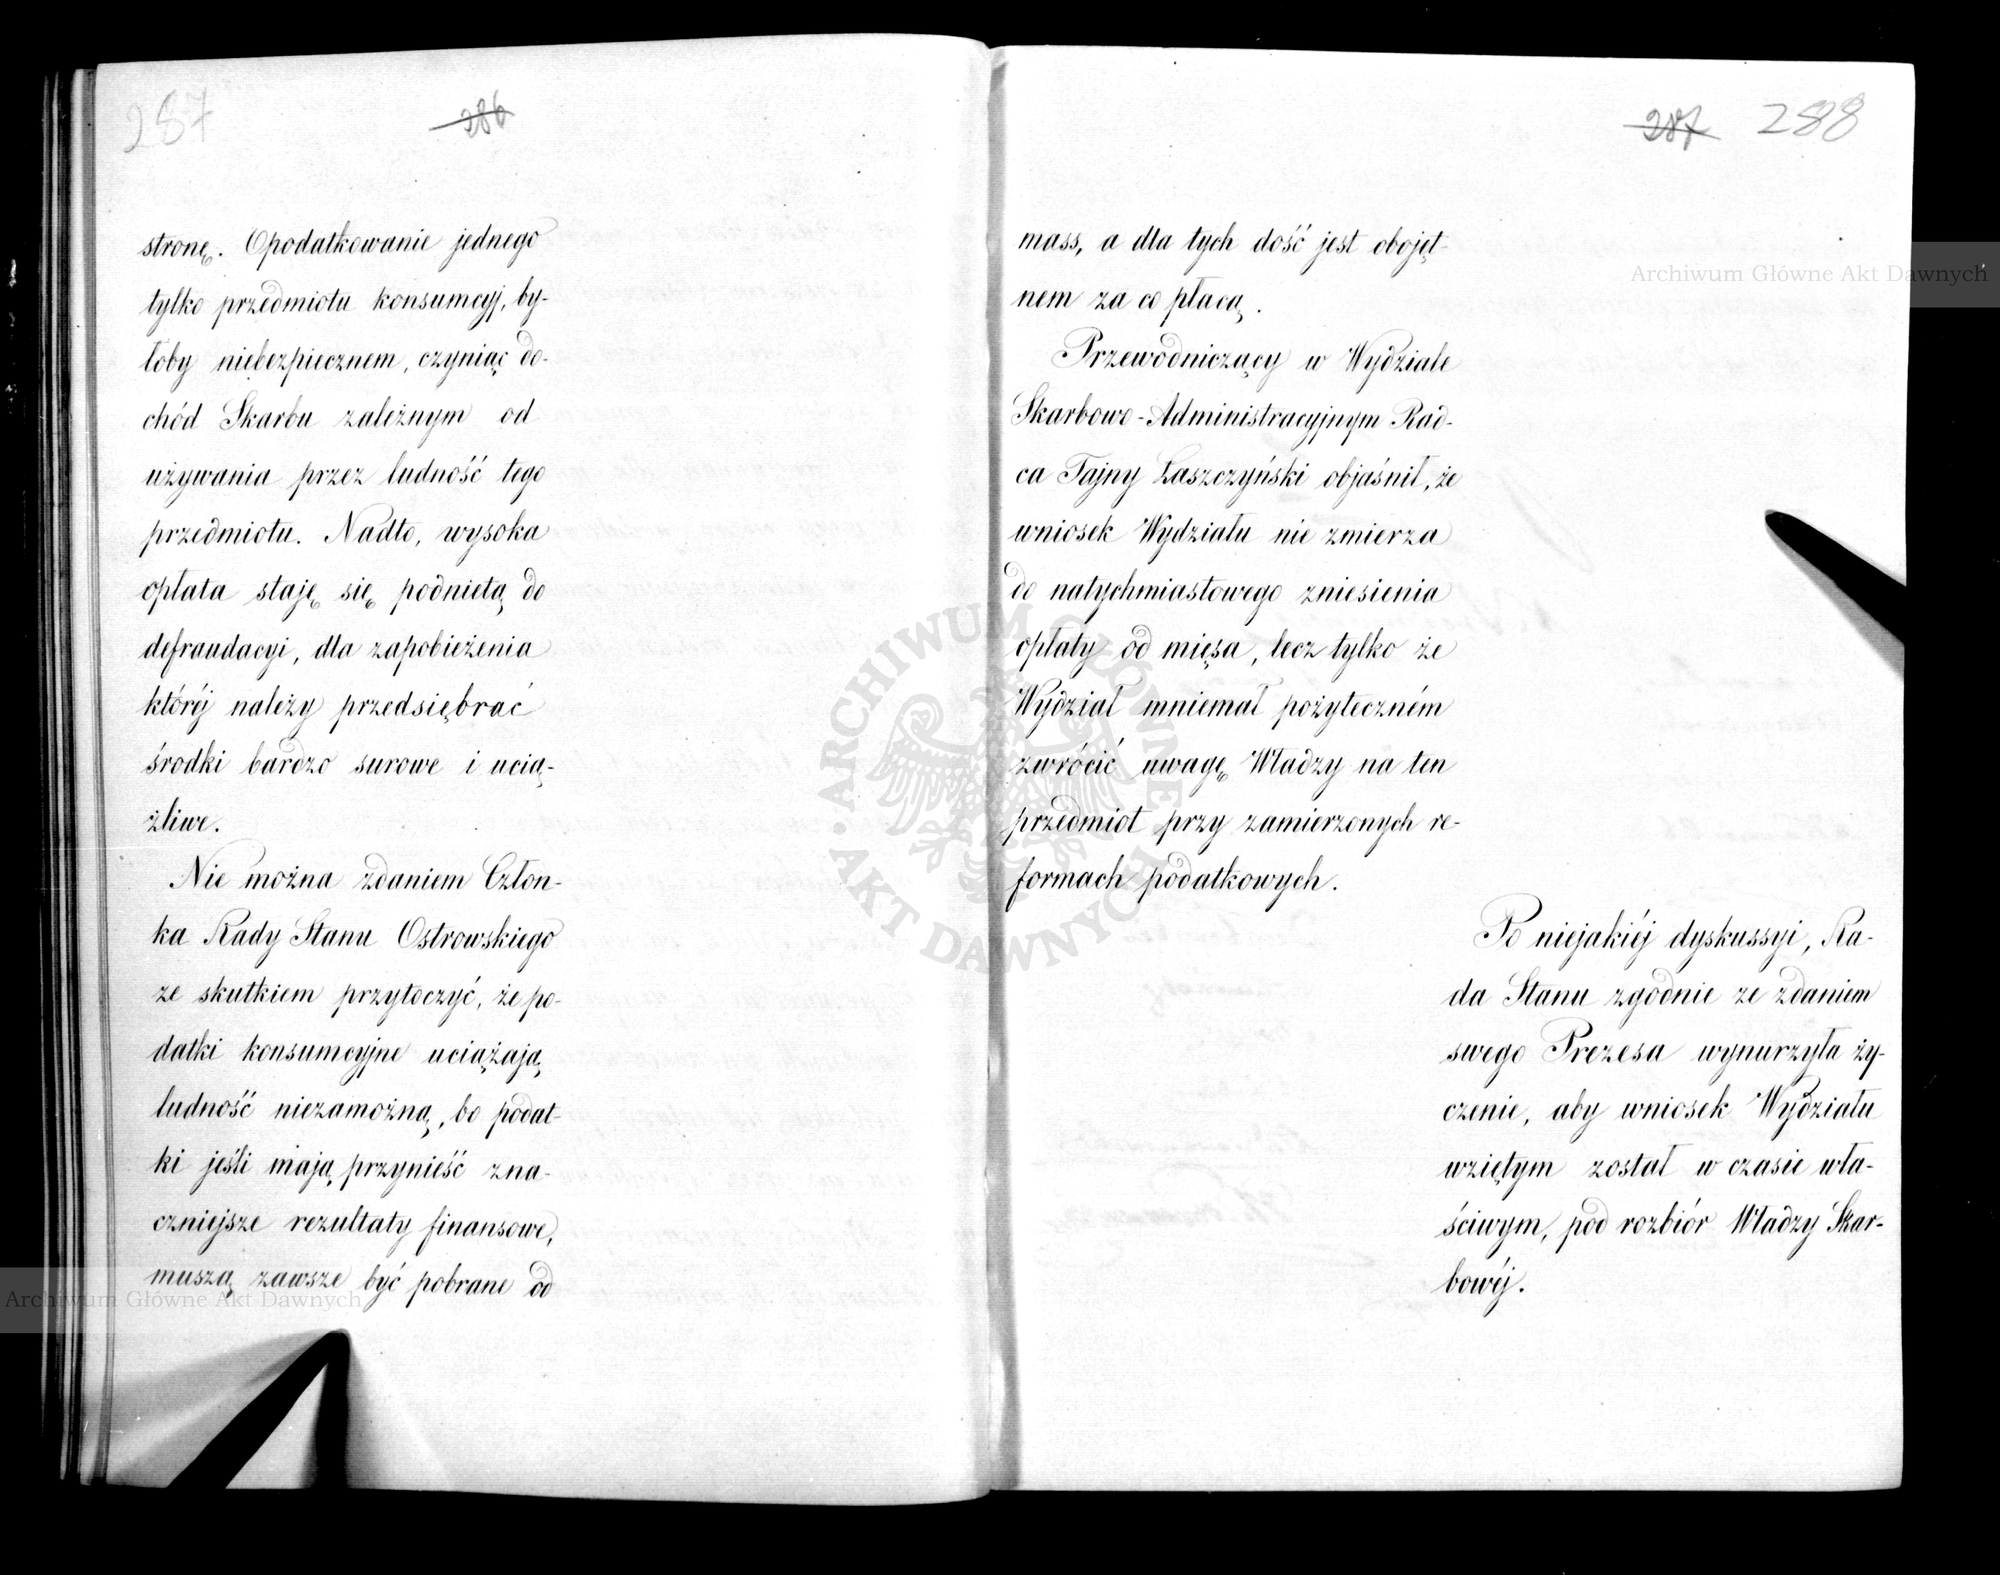 287
286
stronę. Opodatkowanie jednego
tylko przedmiotu konsumcyj, by-
łoby niebezpiecznem, czyniąc do-
chód Skarbu zależnym od
używania przez ludność tego
przedmiotu. Nadto, wysoka
opłata staję się podnietą do
defraudacyi, dla zapobieżenia
któréj należy przedsiębrać
środki bardzo surowe i ucią-
żliwe.
Nie można zdaniem Człon-
ka Rady Stanu Ostrowskiego
ze skutkiem przytoczyć, że po-
datki konsumcyjne uciążają
ludność niezamożną, bo podat-
ki jeśli mają przynieść zna-
czniejsze rezultaty finansowe,
muszą zawsze być pobrane od
287 288
mass, a dla tych dość jest obojęt-
nem za co płacą.
Przewodniczący w Wydziale
Skarbowo-Administracyjnym Rad-
ca Tajny Łaszczyński objaśnił, że
wniosek Wydziału nie zmierza
do natychmiastowego zniesienia
opłaty od mięsa, lecz tylko że
Wydział mniemał pożyteczném
zwrócić uwagę Władzy na ten
przedmiot przy zamierzonych re-
formach podatkowych.
Po niejakiéj dyskussyi, Ra-
da Stanu zgodnie ze zdaniem
swego Prezesa wynurzyła ży-
czenie, aby wniosek Wydziału
wziętym został w czasie wła-
ściwym, pod rozbiór Władzy Skar-
bowéj.
Archiwum Główne Akt Dawnych
ARCHIWUM GŁÓWNE
AKT DAWNYCH
Archiwum Główne Akt Dawnych